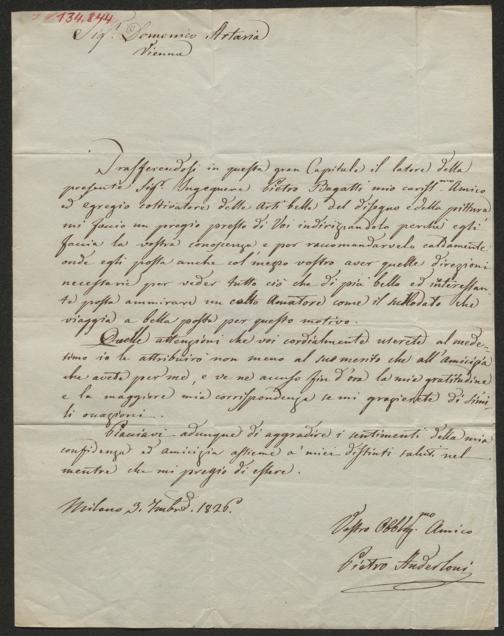 134.844
Sigr. Domenico Artaria
Vienna
Trasferendosi in questa gran Capitale il latore della
presente Sigr. Ingegnere Pietro Bagatti mio carissmo. Amico
ed egregio coltivatore delle Arti belle del disegno e della pittura
mi faccio un pregio presto di Voi indirizandolo perchè egli
faccia la vostra conoscenza e per raccomandarvelo caldamente
onde egli possa anche col mezzo vostro aver quelle direzioni
necessarie per veder tutto ciò che di più bello ed interessan-
te possa ammirare un colto Amatore come il sullodato che
viaggia a bella posta per questo motivo.
Quelle attenzioni che voi cordialmente userete al mede-
simo io le attribuirò non meno al suo merito che all'Amicizia
che avete per me, e ve ne accuso fin d'ora la mia gratitudine
e la maggiore mia corrispondenza se mi grazierete di simi-
li occazioni.
Piacciavi adunque di aggradire i sentimenti della mia
confidenza ed amicizia assieme a' miei distinti saluti nel
mentre che mi pregio di essere.
Milano 3. 1826.
Vostro Obblig.mo Amico
Pietro Anderloni